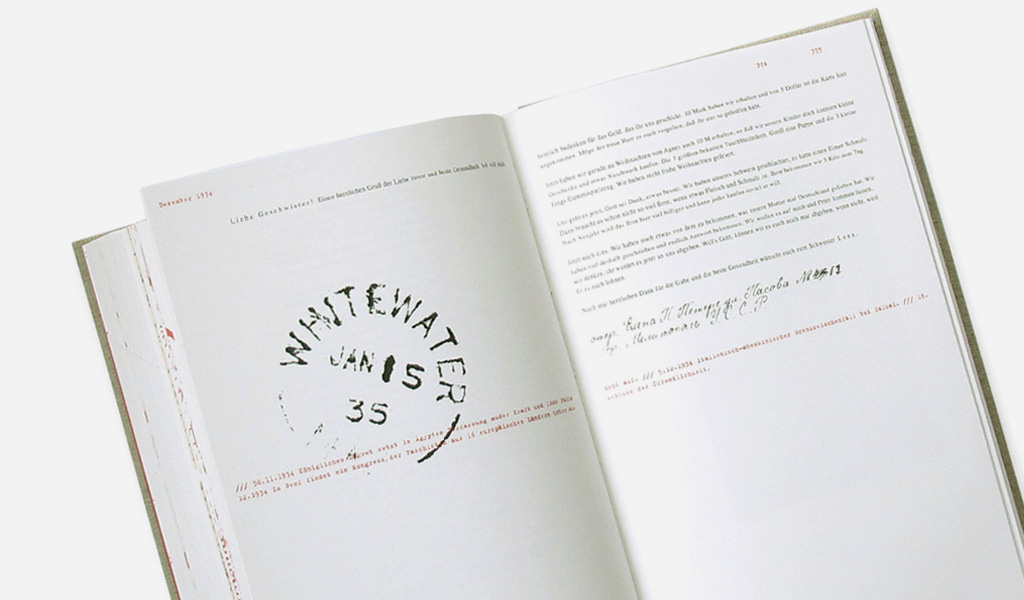 Dezember 1934
Liebe Geschwister! Einen herzlichen Gruß der Liebe zuvor und beste Gesundheit
WHITEWATER
JAN 15
35
/// 30.11.1934 Königliches setzt in Ägypten Verfassung außer Kraft und löst
12.1934 In Genf findet ein Kongress der Faschisten aus 16 europäischen Ländern unter
374 375
herzlich bedanken für das Geld, das ihr uns geschickt. 10 Mark haben wir erhalten und von 5 Dollar ist die Karte hier
angekommen. Möge der treue Herr es euch vergelten, daß ihr uns so geholfen habt.
Jetzt haben wir gerade zu Weihnachten von Agnes auch 10 M erhalten, so daß wir unsere Kinder doch konnten kleine
Geschenke und etwas Naschwerk kaufen. Die 3 größten bekamen Taschentücher, Gretl eine Puppe und die 3 kleine
Jungs Gummispielzeug. Wir haben recht frohe Weihnachten gefeiert.
Uns geht es jetzt, Gott sei Dank, etwas besser. Wir haben unseren Schwein geschlachtet, es hatte einen Eimer Schmalz.
Dazu braucht es schon nicht so viel Brot, wenn etwas Fleisch und Schmalz ist. Brot bekommen wir 3 Kilo dem Tag.
Nach Neujahr wird das Brot hier viel billiger und kann jeder kaufen soviel er will.
Jetzt noch eins. Wir haben noch etwas von dem zu bekommen, was unsere Mutter auf Deutschland geliehen hat. Wir
haben viel deshalb geschrieben und endlich Antwort bekommen. Wir wollen es auf euch und Peter kommen lassen,
wir denken, ihr werdet es jetzt an uns abgeben. Will's Gott, können wir es euch noch mal abgeben, wenn nicht, wird
Er es euch lohnen.
Noch mal herzlichen Dank für die Gabe und die beste Gesundheit wünscht euch eure Schwester Lena.
Елена П Петерс ул. Часова № 12
гр. Мелитополь У.С.С.Р.
/// 5.12.1934 Italienisch-abessinischer Grenzzwischenfall bei Ualual. ///
schluss der Öffentlichkeit.